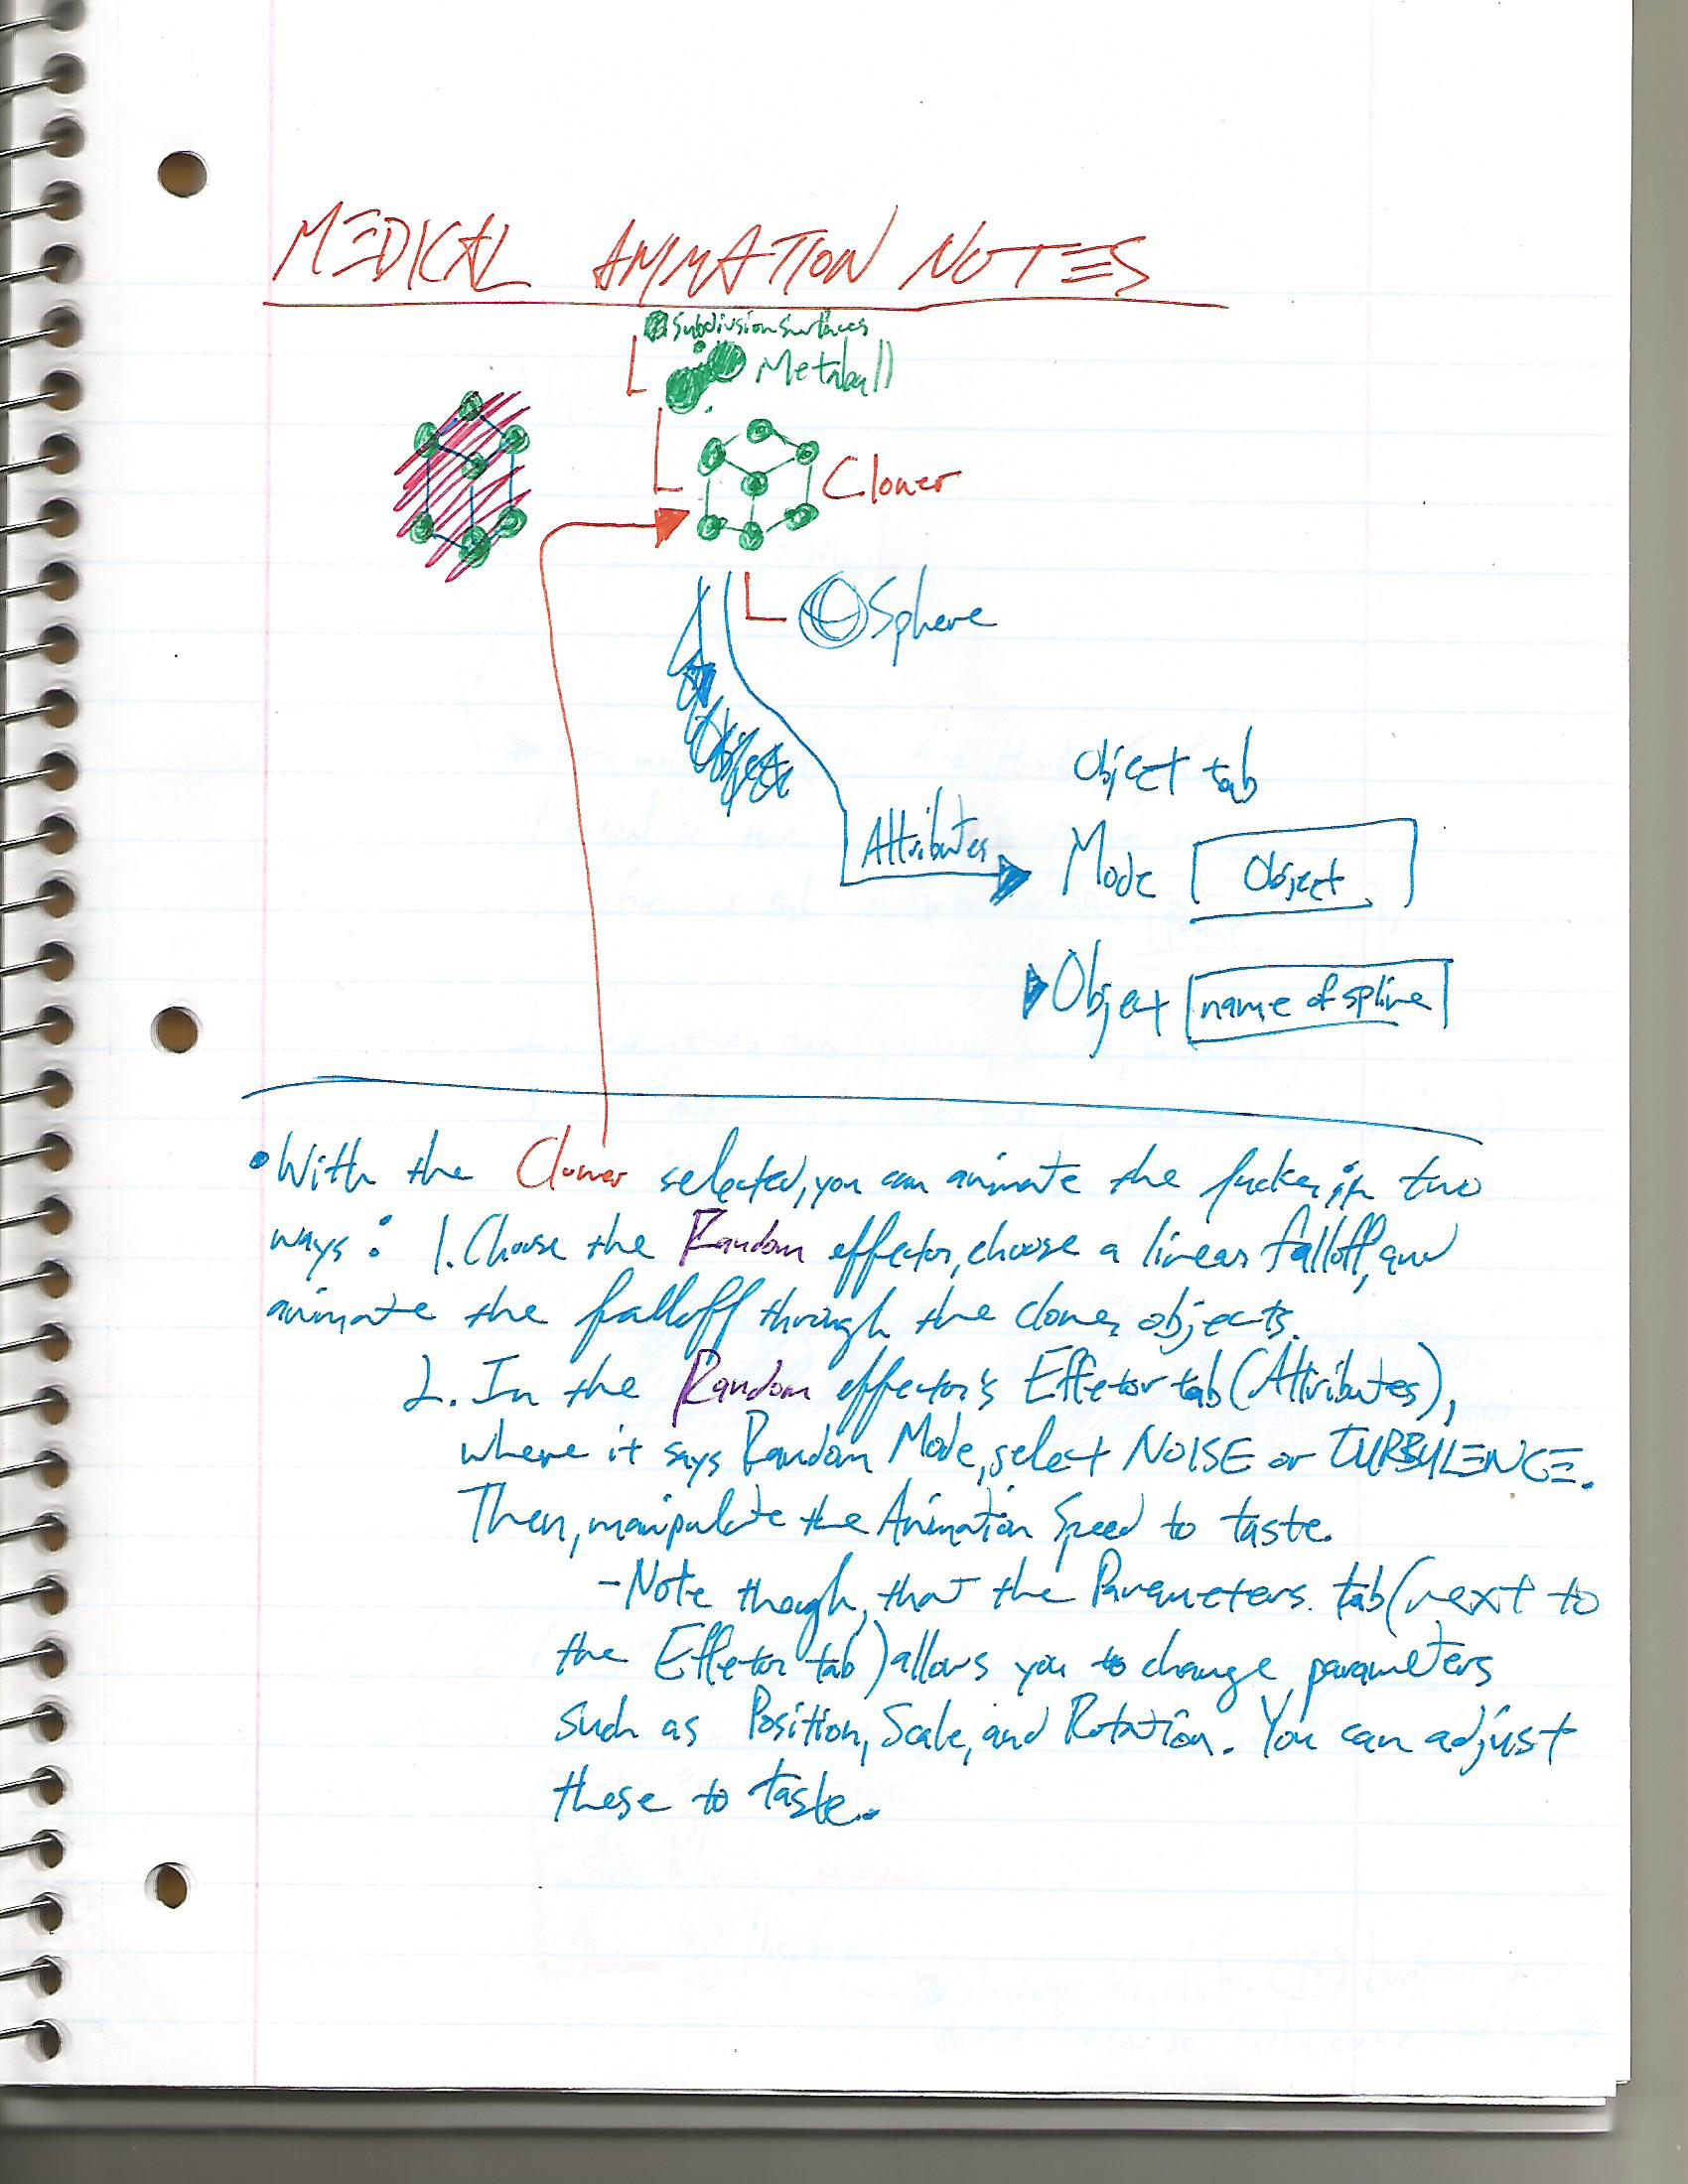 MEDICAL ANIMATION NOTES
Subdivision Surfaces
Metaball
Cloner
Sphere
Object
Object tab
Attributes
Mode Object
Object name of spline
•With the Cloner selected, you can animate the fucker in two
ways: 1. Choose the Random effector, choose a linear falloff, and
animate the falloff through the cloner objects.
2. In the Random effector's Effetor tab (Attributes),
where it says Random Mode, select NOISE or TURBULENCE.
Then, manipulate the Animation Speed to taste.
-Note though, that the Parameters tab (next to
the Effetor tab) allows you to change parameters
such as Position, Scale, and Rotation. You can adjust
these to taste.